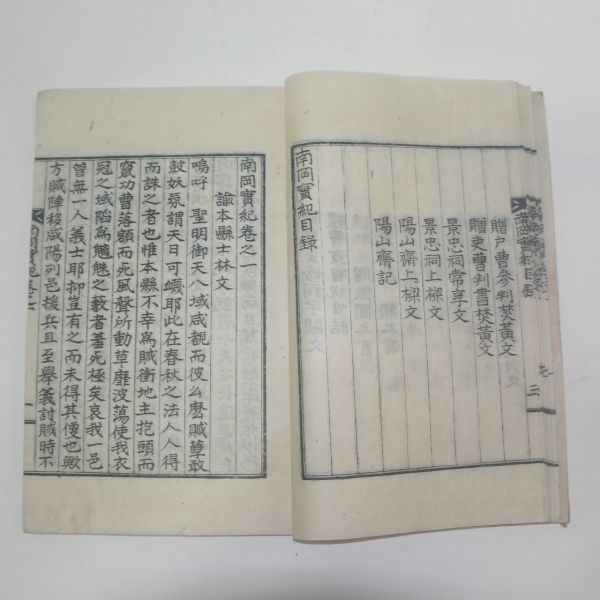 南岡實紀目錄
贈戶曹參判焚黃文
贈吏曹判書焚黃文
景忠祠常享文
景忠祠上樑文
陽山齋上樑文
陽山齋記
南岡實紀目錄
二
南岡實紀卷之一
諭本縣士林文
嗚呼 聖明御天八域咸覩而彼幺麽賊孽敢
鼓妖氛謂天日可蠛耶此在春秋之法人人得
而誅之者也惟本縣不幸爲賊衝地主抱頭而
竄功曹落顙而死風聲所動草靡波蕩使我衣
冠之域陷爲魑魅之藪者蓍死極矣哀我一邑
曾無一人義士耶抑豈有之而未得其便也歟
方賊陣移咸陽列邑援兵且至擧義討賊時不